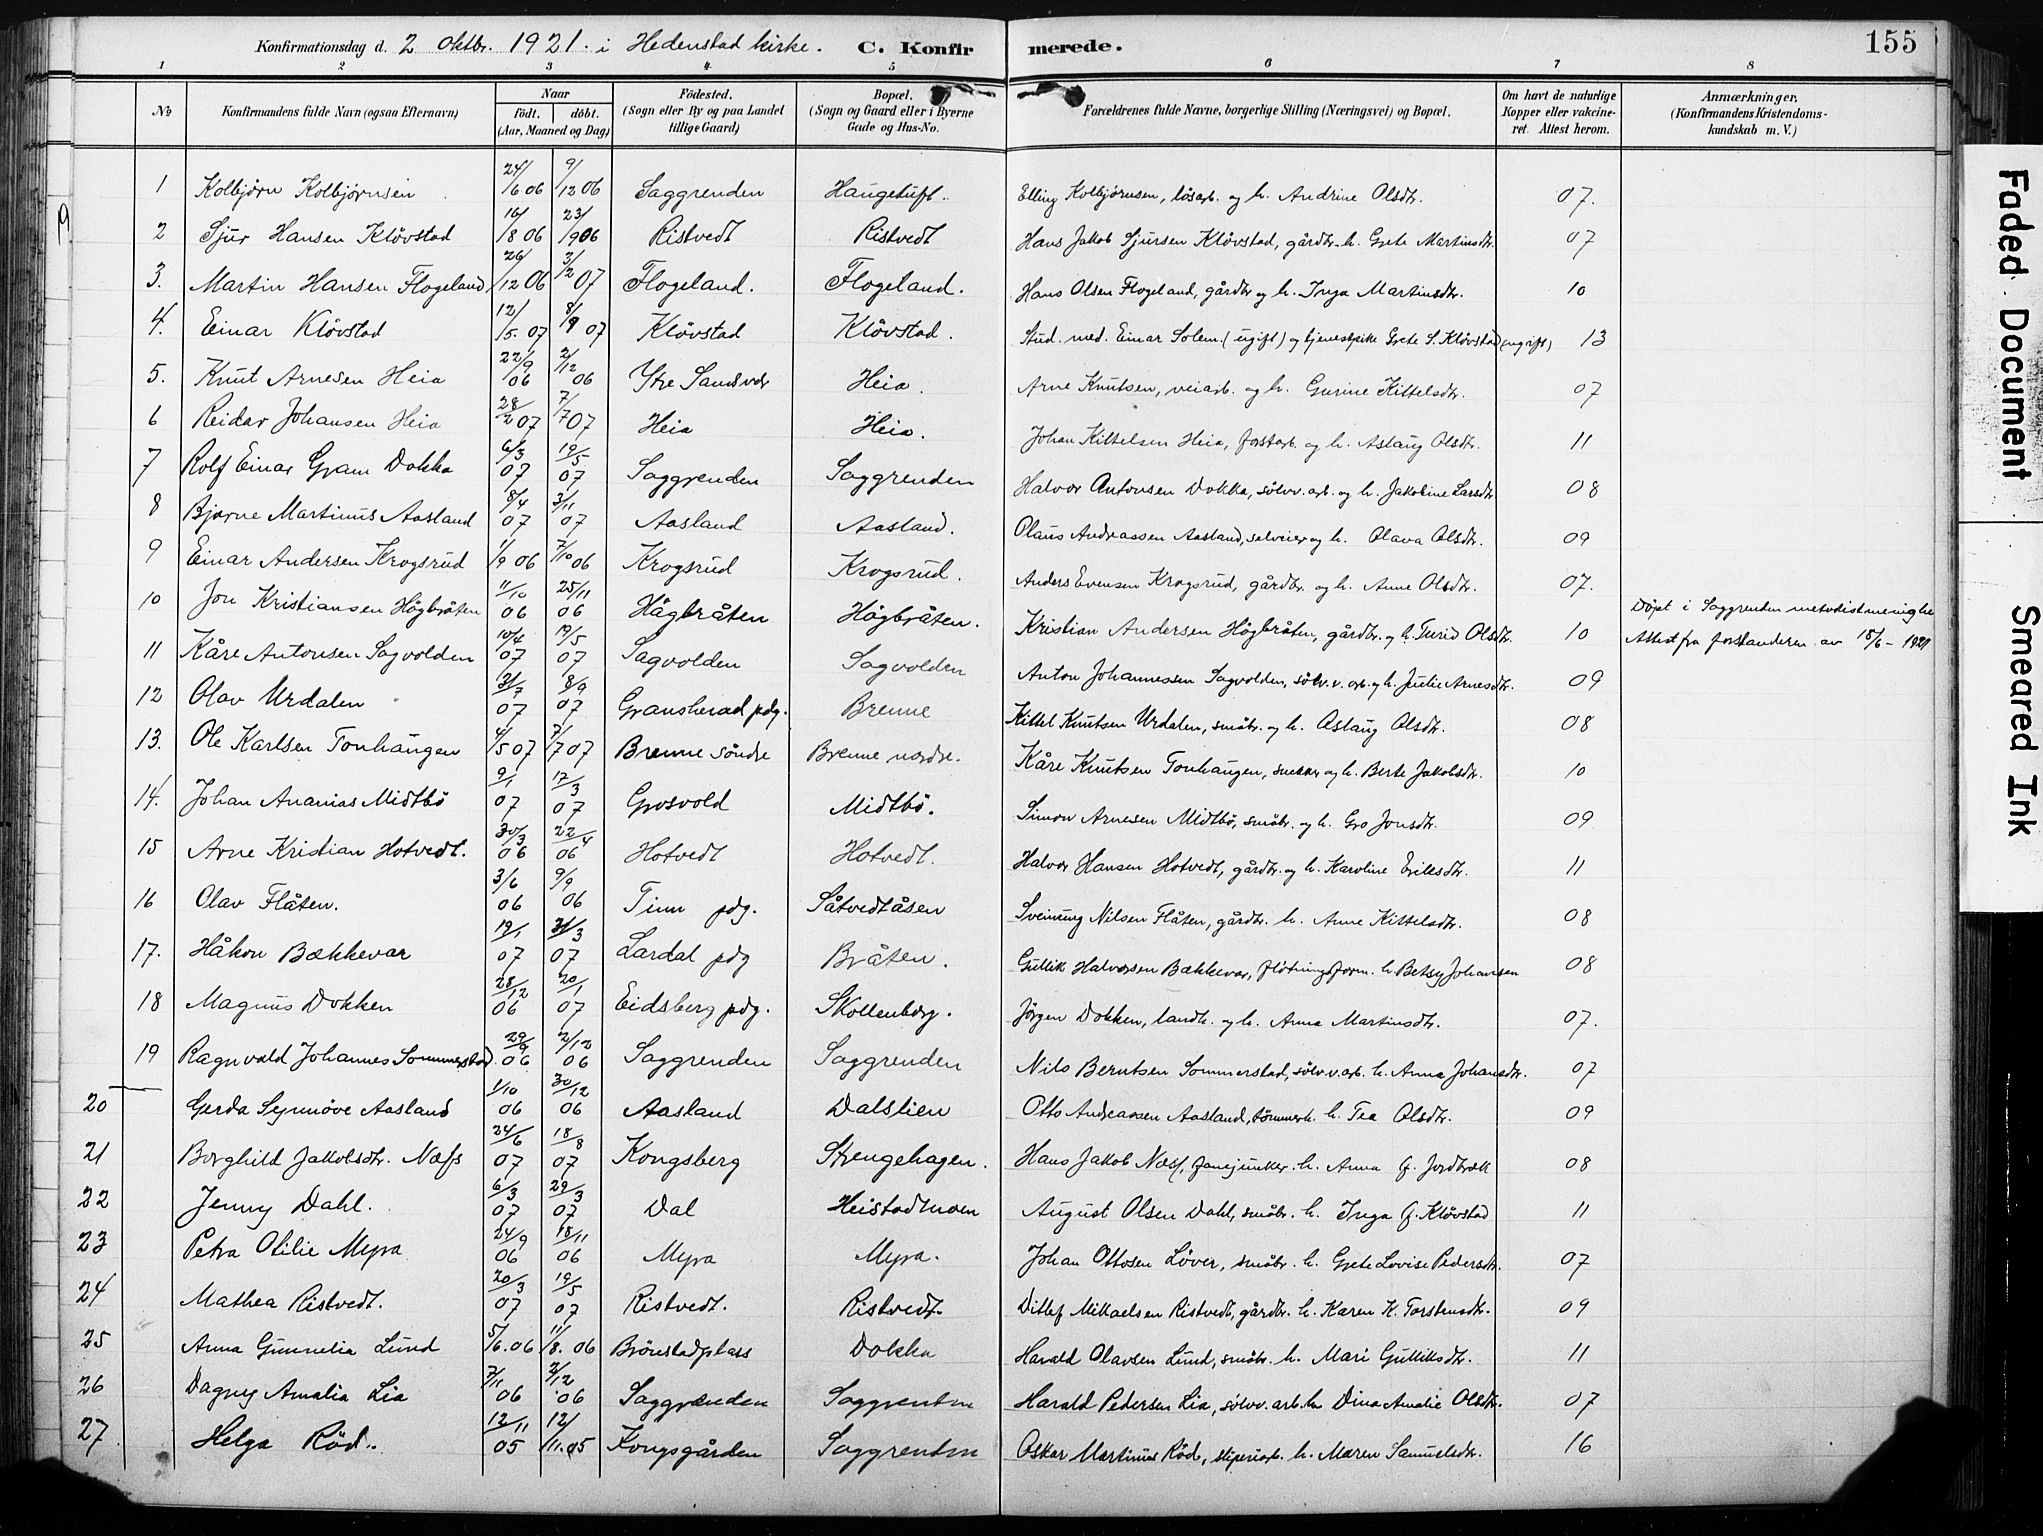 Konfirmationsdag d. 2 oktbr. 1921. i Hedenstad kirke. C. Konfirmerede. 155
1 2 3 4 5 6 7 8
No Konfirmandens fulde Navn (ogsaa Efternavn) Naar født. døbt. (Aar, Maaned og Dag) Fødested. (Sogn eller By og paa Landet tillige Gaard) Bopæl. (Sogn og Gaard eller i Byerne Gade og Hus-No. Forældrenes fulde Navne, borgerlige Stilling (Næringsvei) og Bopæl. Om havt de naturlige Kopper eller vakcineret. Attest herom. Anmærkninger. (Konfirmandens Kristendomskundskab m. V.)
1 Kolbjörn Kolbjörnsen 24/6 06 9/12 06 Saggrenden Haugetuft. Elling Kolbjörnsen, lösarb. og h. Andrine Olsdtr. 07.
2 Sjur Hansen Klövstad 16/8 06 23/9 06 Ristvedt Ristvedt Hans Jakob Sjursen Klövstad, gårdbr. h. Grete Martinsdtr. 07
3. Martin Hansen Flogeland 26/12 06 3/2 07 Flogeland. Flogeland. Hans Olsen Flogeland, gårdbr og h. Inga Martinsdtr. 10
4. Einar Klövstad 12/5. 07 8/9 07 Klövstad Klövstad. Stud. med. Einar Solem (ugift) og tjenestpike Grete S. Klövstad (ugift) 13
5. Knut Arnesen Heia 22/9 06 2/12 06 Ytre Sandsvær Heia. Arne Knutsen, veiarb. og h. Gurine Kittelsdtr. 07
6 Reidar Johansen Heia 28/2 07 7/7 07 Heia Heia. Johan Kittelsen Heia, forstarb. og h. Aslaug Olsdtr. 11
7 Rolf Einar Gram Dokka 6/3 07 19/5 07 Saggrenden Saggrenden Halvor Antonsen Dokka, sölvv. arb. og h. Jakobine Larsdtr 08
8 Bjarne Martinus Aasland 8/4 07 3/11 07 Aasland Aasland. Olaus Andreassen Aasland, selveier og h. Olava Olsdtr. 09
9 Einar Andersen Krogsrud 1/9 06 7/10 06 Krogsrud Krogsrud. Anders Evensen Krogsrud, gårdbr. og h. Anne Olsdtr. 07.
10 Jon Kristiansen Högbråten 11/10 06 25/11 06 Högbråten Högbråten. Kristian Andersen Högbråten, gårdbr. og h. Turid Olsdtr. 10 Döpt i Saggrenden metodistmenighe Attest fra forstanderen av 15/6 - 1921
11 Kåre Antonsen Sagvolden 10/4 07 19/5 07 Sagvolden Sagvolden Anton Johannessen Sagvolden, sölv.v. arb. og h. Julie Arnesdtr. 09
12 Olav Urdalen 31/7 07 8/9 07 Gransherad pdg. Brenne Kittel Knutsen Urdalen, småbr. og h. Aslaug Olsdtr. 08
13. Ole Karlsen Tonhaugen 4/5 07 7/7 07 Brenne söndre Brenne nordre. Kåre Knutsen Tonhaugen, snekker og h. Berte Jakobsdtr. 10
14. Johan Ananias Midtbö 9/1 07 17/3 07 Grosvold Midtbö. Simon Arnesen Midtbö, småbr. og h. Gro Jonsdtr. 09
15 Arne Kristian Hotvedt. 30/3 06 22/4 06 Hotvedt Hotvedt. Halvor Hansen Hotvedt, gårdbr. og h. Karoline Eriksdtr. 11
16 Olav Flåten. 3/6 06 9/9 06 Tinn pdg. Såtvedtåsen Sveinung Nilsen Flåten, gårdbr. h. Anne Kittelsdtr. 08
17. Håkon Bækkevar 19/1 07 31/3 07 Lardal pdg Bråten. Gullik Halvorsen Bækkevar, flötningsform. h. Betsy Johansen 08
18 Magnus Dokken 28/12 06 20/1 07 Eidsberg pdg. Skollenborg. Jörgen Dokken, landh. og h. Anna Martinsdtr. 07.
19 Ragnvald Johannes Sommerstad. 29/9 06 2/12 06 Saggrenden Saggrenden Nils Berntsen Sommerstad, sölv.v.arb. h. Anna Johansdtr. 07
20 Gerda Synnöve Aasland 1/10 06 30/12 06 Aasland Dalslien Otto Andreassen Aasland, tömmerh. h. Tea Olsdtr. 09
21 Borghild Jakobsdtr. Næss 24/6 07 18/8 07 Kongsberg Strengehagen. Hans Jakob Næss, fanejunker. h. Anna f. Jordbræk 08
22 Jenny Dahl. 6/3 07 29/3 07 Dal Heistadmoen August Olsen Dahl, småbr. h. Inga f. Klövstad 11
23 Petra Otilie Myra 24/9 06 18/11 06 Myra Myra. Johan Ottosen Löver, småbr. h. Grete Lovise Pedersdtr. 07
24 Mathea Ristvedt. 20/3 07 19/5 07 Ristvedt. Ristvedt Ditlef Mikkaelsen Ristvedt, gårdbr. h. Karen K. Torstensdtr. 09
25 Anna Gunnelia Lund 5/6. 06 11/8. 06 Brönstadplass Dokka Harald Olavsen Lund, småbr. h. Mari Gulliksdtr. 11
26 Dagny Amalia Lia 7/11 06 2/12 06 Saggrænden Saggrenden Harald Pedersen Lia, sölvv. arb. h. Dina Amalie Olsdtr. 07
27 Helga Röd.. 12/11 05 12/11. 05 Kongsgården Saggrenden Oskar Martinius Röd, sliperiarb. h. Maren Samuelsdtr. 16
Faded Document
Smeared Ink